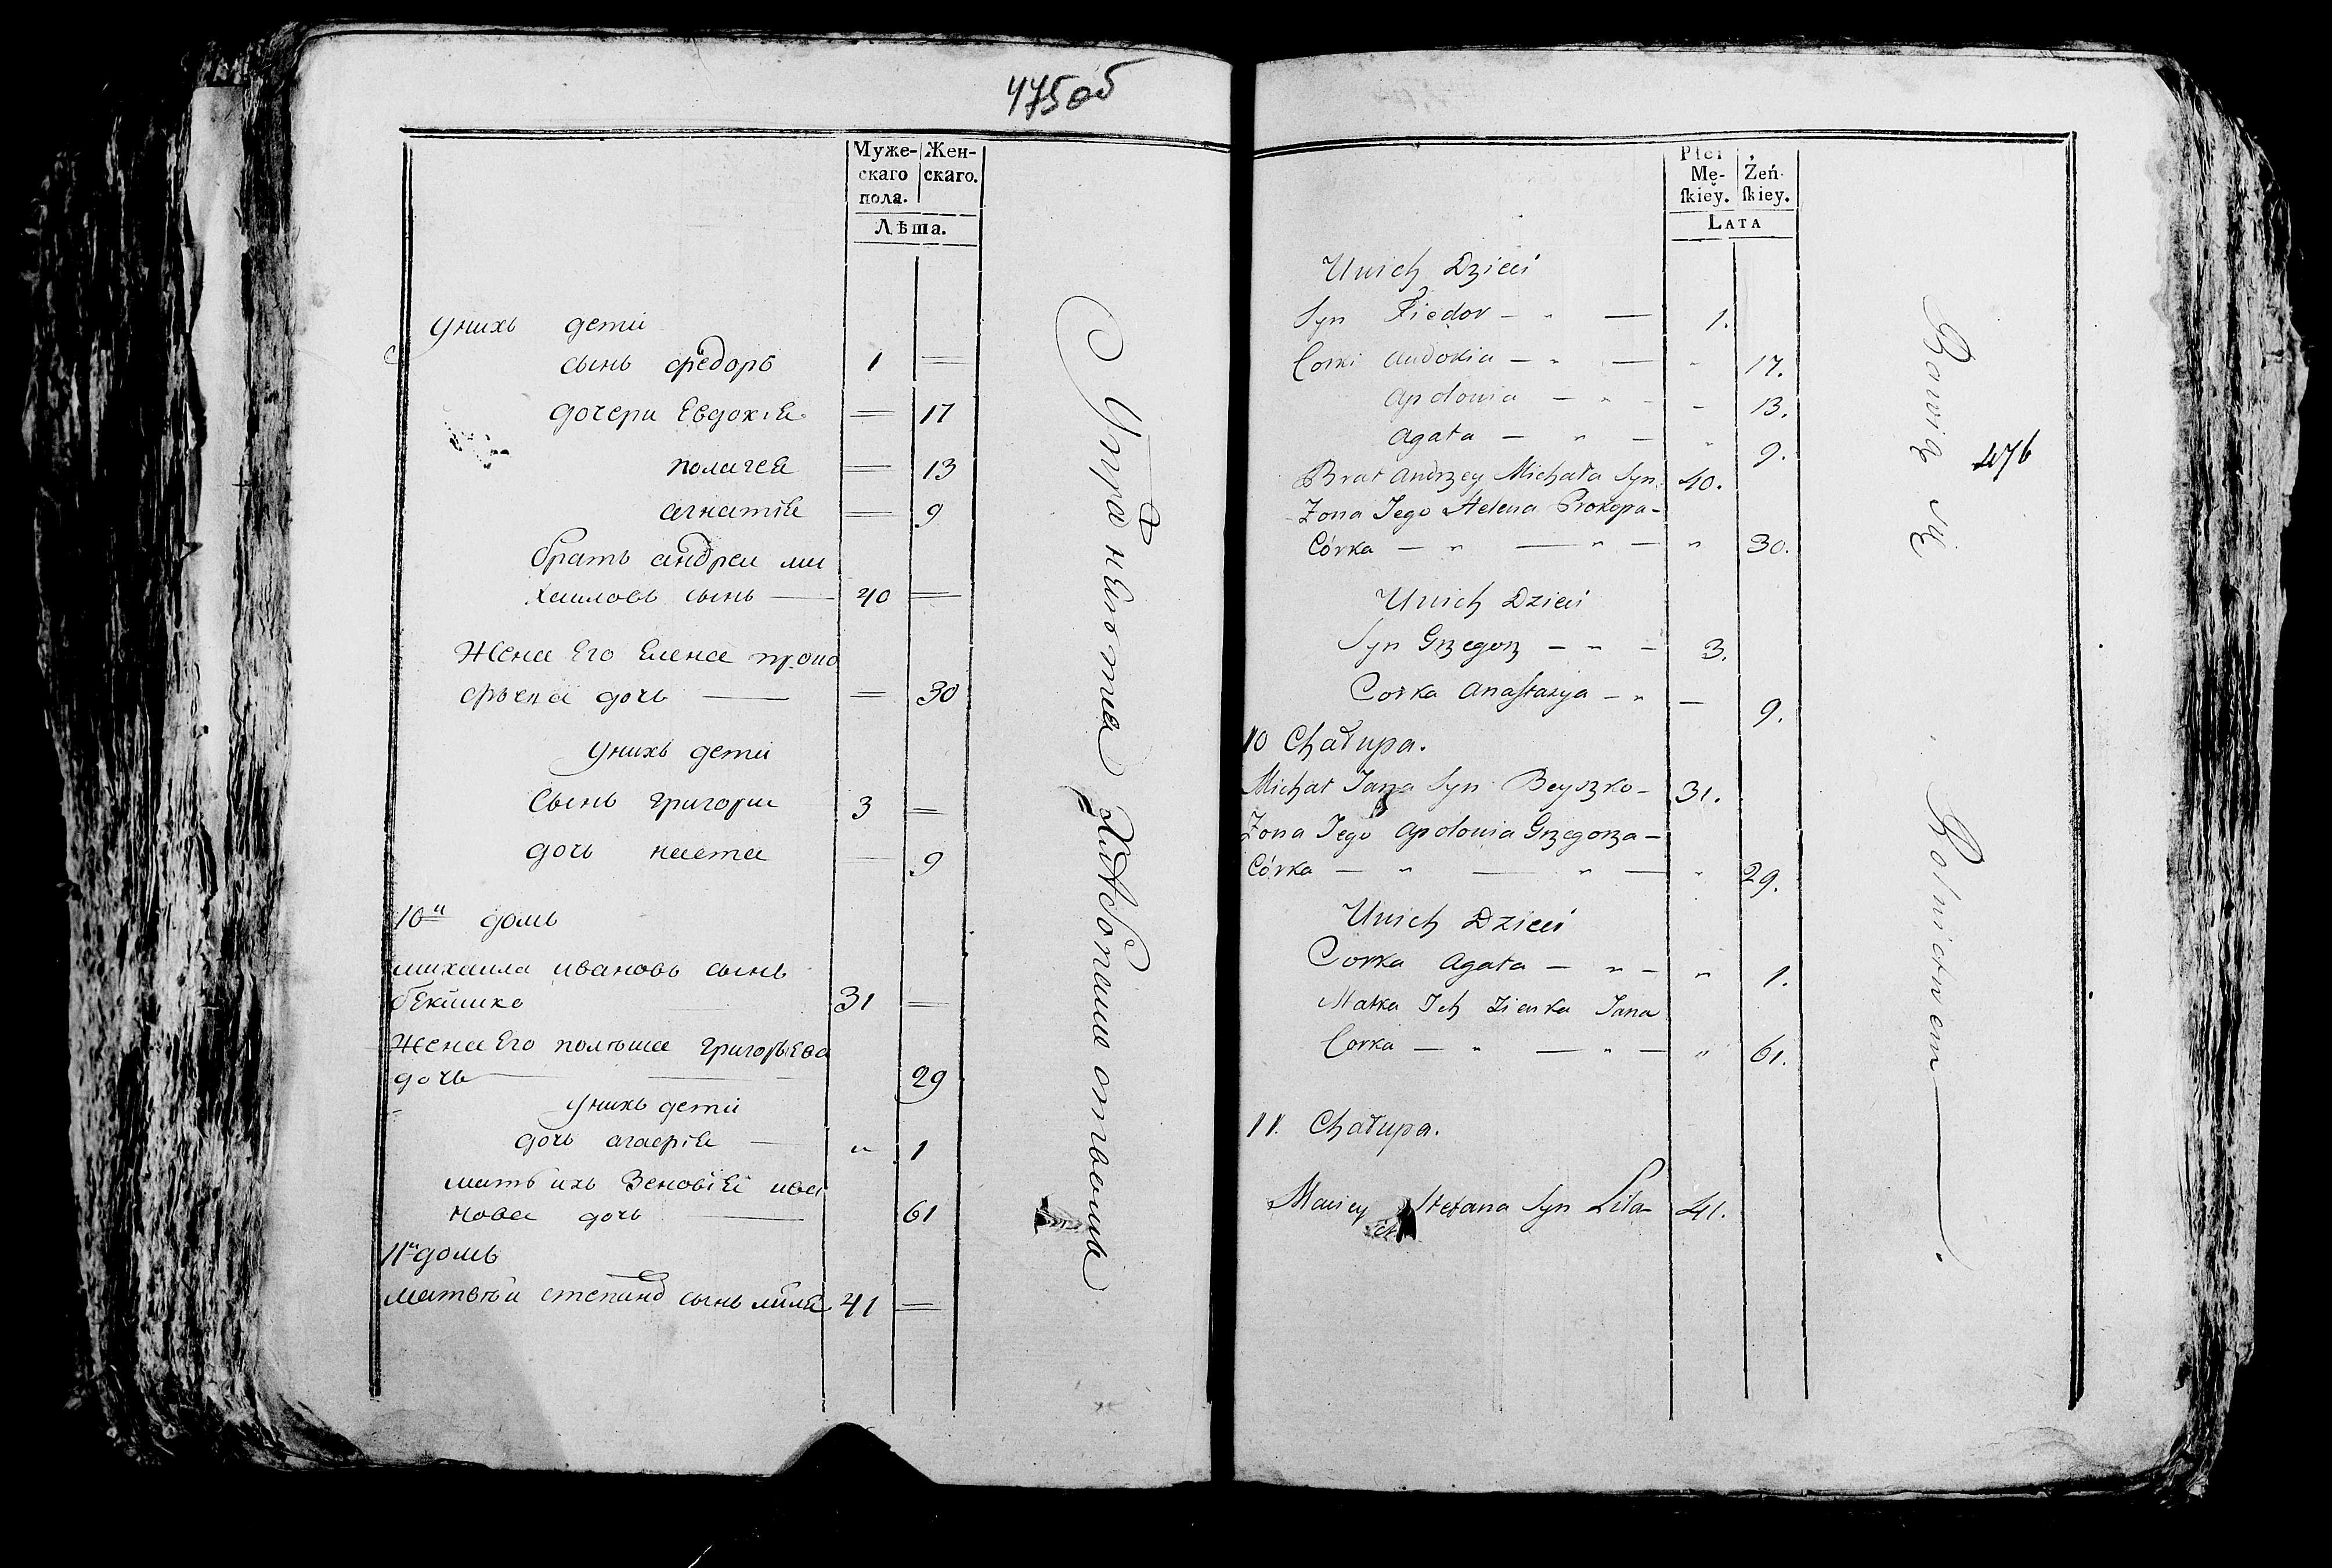 475об
Муже-
скаго
пола.
Жен-
скаго.
Лѣта.
унихъ дети
сынъ федоръ 1 =
дочери Евдокiя = 17
полагея = 13
агнатiя = 9
братъ андреи ми
хаиловъ сынъ — 40 =
Жена Его Елена
дочь — = 30
унихъ дети
Сынъ григории 3 =
дочь наста — 9
10й домъ
михаила ивановъ сынъ
31 —
Жена Его григорьева
дочь — 29
унихъ дети
дочь агафiя — „ 1
мать ихъ Зеновiя ива
нова дочь — 61
11й домъ
матвѣй сынъ лила 41 =
Упражняются хлѣбопашествомъ
Płci
Mę-
skiey.
Żeń-
skiey.
LATA
Unich Dzieci
Syn Fiedor — „ — 1.
Corki Audokia — „ — „ 17.
Apolonia — „ — - 13.
Agata — „ — „ 9.
Brat Andrzey Michała Syn 40.
Zona Jego Helena Prokopa-
Córka — „ — „ — „ 30.
Unich Dzieci
Syn Grzegorz — „ — 3.
Corka Anastazya — „ — 9.
10 Chałupa.
Michał Jana Syn Beyszko- 31.
Zona Jego Apolonia Grzegorza —
Córka — „ — „ — „ 29.
Unich Dzieci
Corka Agata — „ — „ 1.
Matka Ich Zienka Jana
Corka — „ — „ — „ 61.
11. Chałupa.
Maciey Stefana Syn Lila- 41.
Bawią się Rolnictwem —.
476